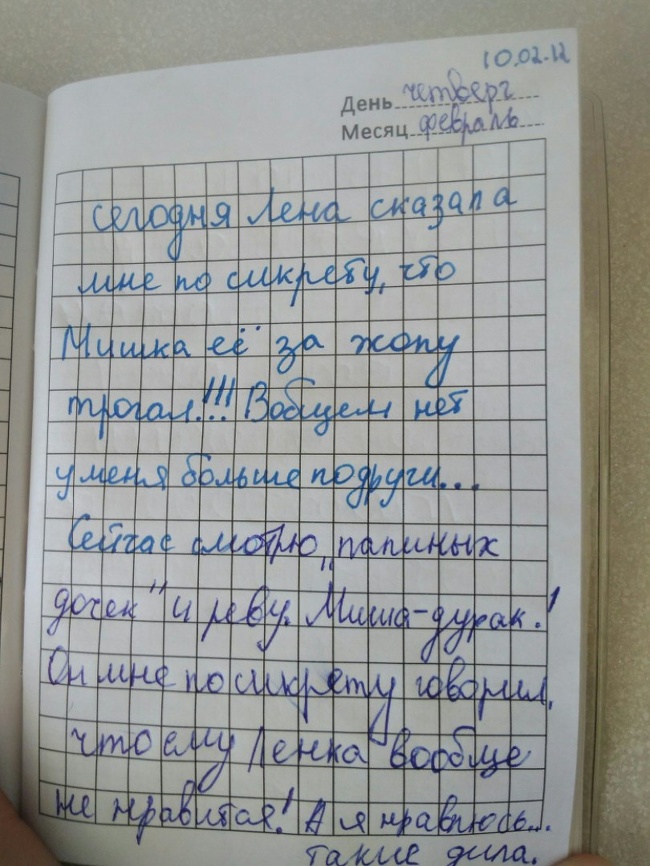 10.02.12
День четверг
Месяц февраль
сегодня Лена сказала
мне по сикрету, что
Мишка её за жопу
трогал!!! Вобщем нет
у меня больше подруги...
Сейчас смотрю „папиных
дочек" и реву. Миша-дурак!
Он мне по сикрету говорил,
что ему Ленка вообще
не нравится! А я нравлюсь...
такие дила.